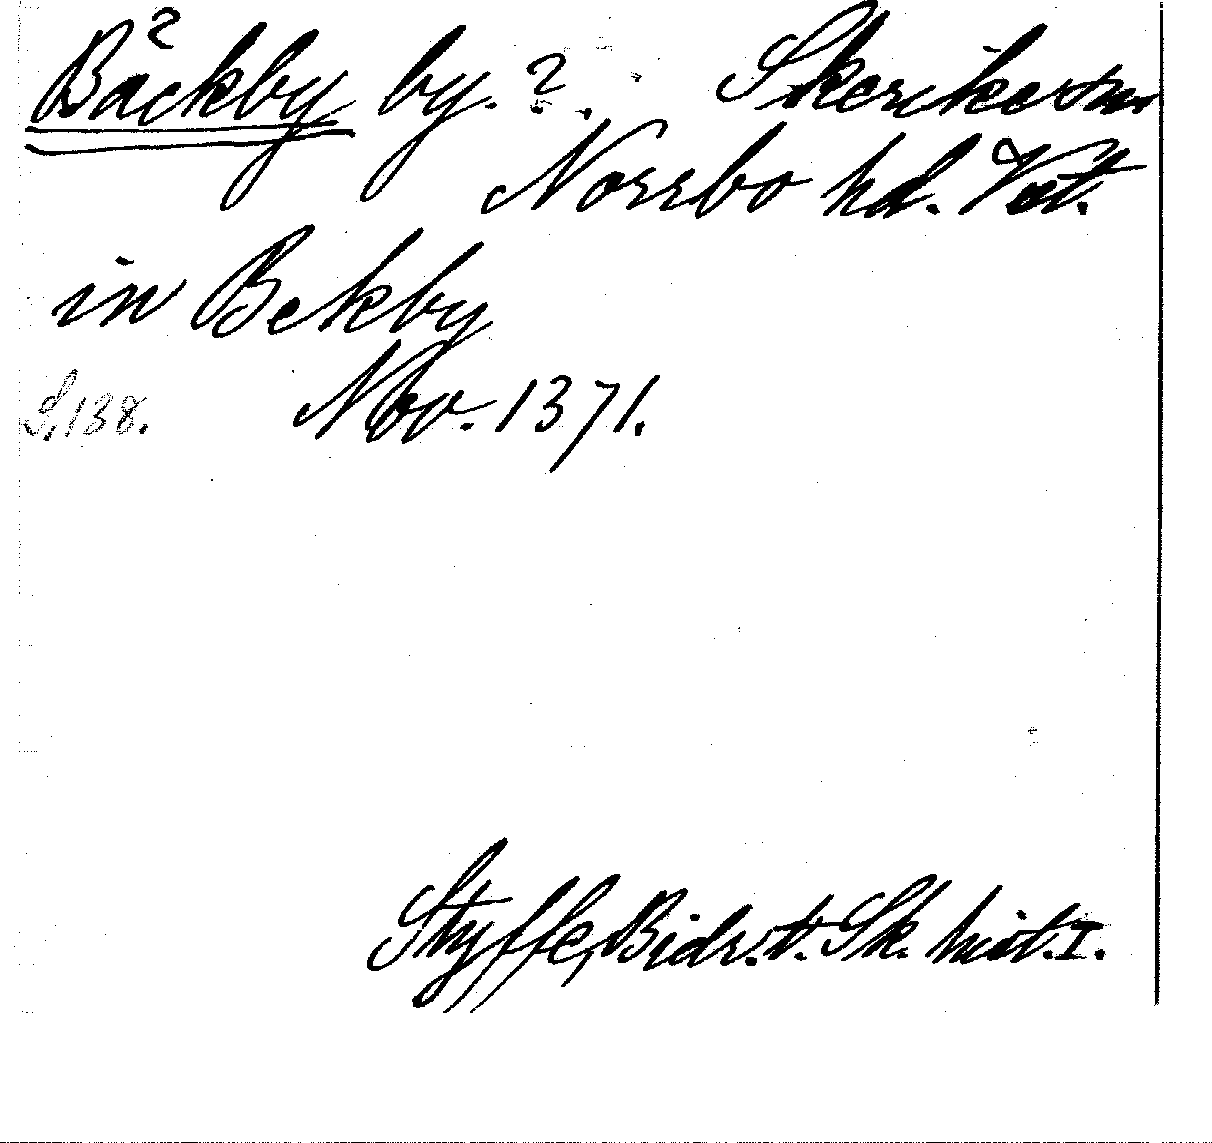 Bäckby by. ? Skerike sn.
Norrbo hd. Vst.
in Bekby
S, 138. Nov. 1371.
Styffe, Bidr. t. Sk. hist. I.